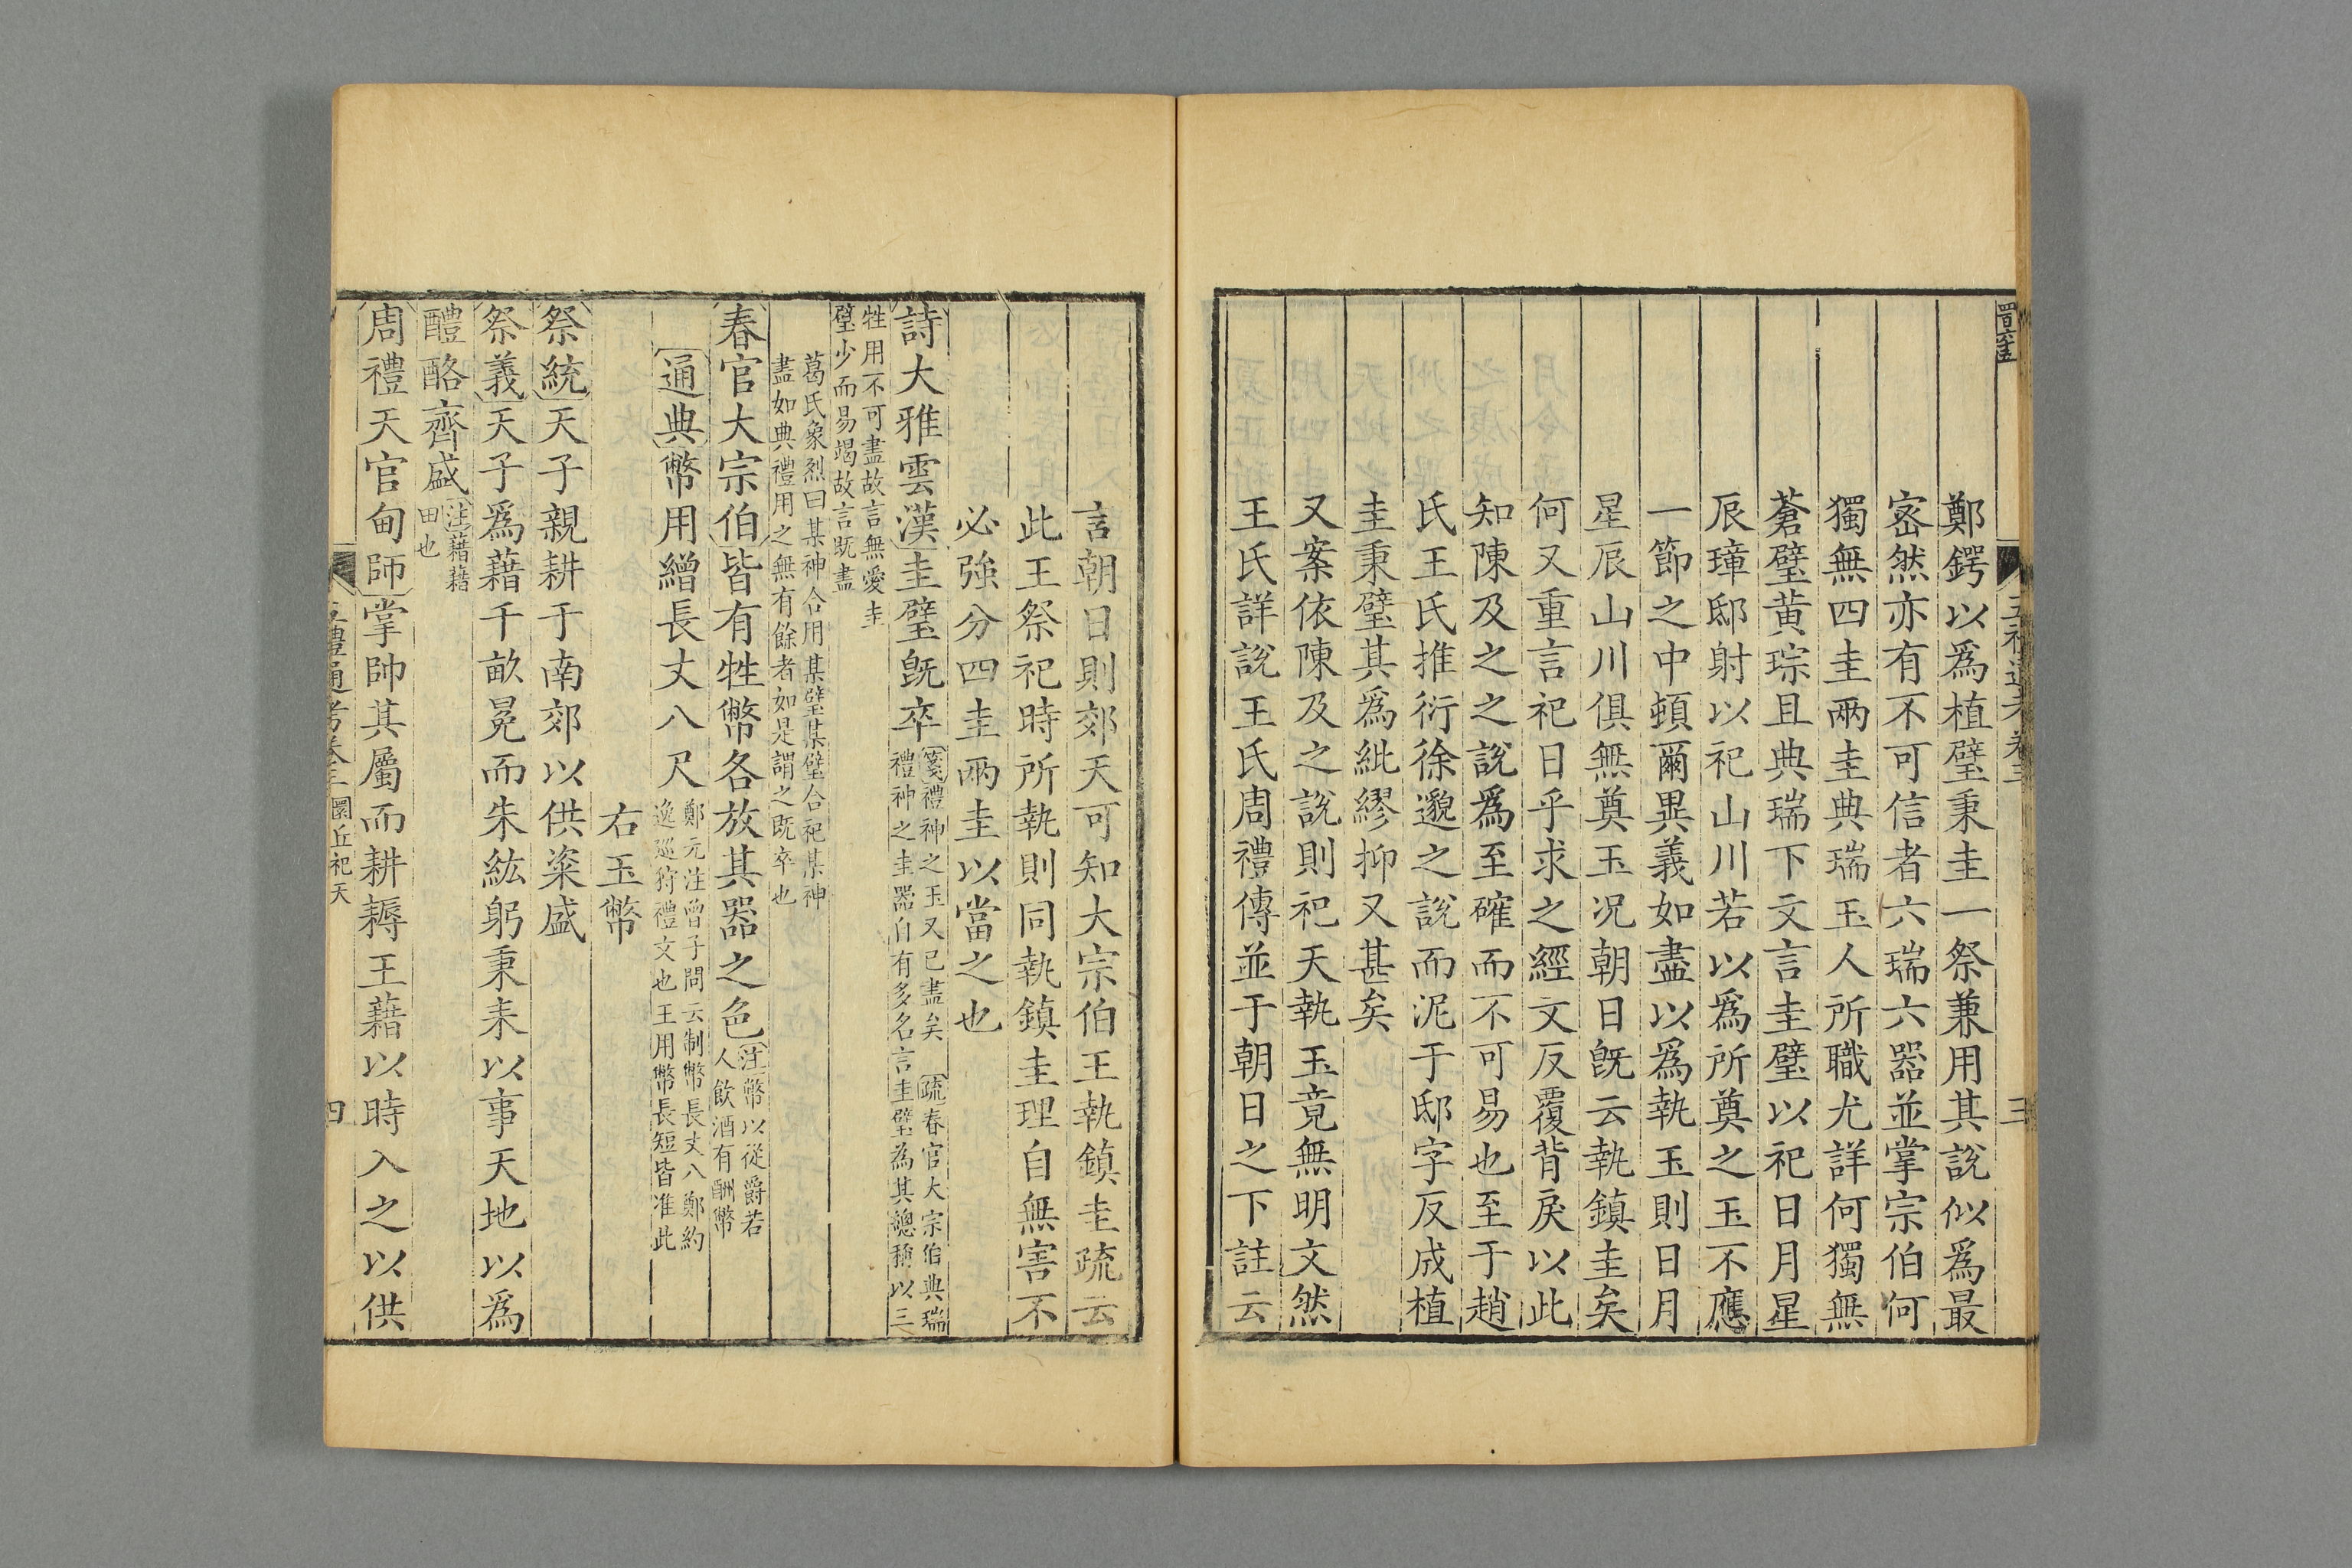 鄭鍔以爲植璧秉圭一祭兼用其說似爲最
宻然亦有不可信者六瑞六器並掌宗伯何
獨無四圭兩圭典瑞玉人所職尤詳何獨無
蒼璧黄琮且典瑞下文言圭璧以祀日月星
辰璋邸射以祀山川若以爲所奠之玉不應
一節之中頓爾異義如盡以爲執玉則日月
星辰山川俱無奠玉况朝日旣云執鎮圭矣
何又重言祀日乎求之經文反覆背戾以此
知陳及之之說爲至確而不可易也至于趙
氏王氏推衍徐邈之說而泥于邸字反成植
圭秉璧其爲紕繆抑又甚矣
又案依陳及之說則祀天執玉竟無明文然
王氏詳說王氏周禮傳並于朝日之下註云
言朝日則郊天可知大宗伯王執鎮圭疏云
此王祭祀時所執則同執鎮圭理自無害不
必強分四圭兩圭以當之也
詩大雅雲漢圭璧旣卒
箋禮神之玉又已盡矣 疏春官大宗伯典瑞
禮神之圭器自有多名言圭璧為其總稱以三
牲用不可盡故言無愛圭
璧少而易竭故言既盡
葛氏象烈曰某神合用某璧某璧合祀某神
盡如典禮用之無有餘者如是謂之既卒也
春官大宗伯皆有牲幣各放其器之色
注幣以從爵若
人飲酒有酬幣
通典幣用繒長丈八尺
鄭元注曾子問云制幣長丈八鄭約
逸巡狩禮文也王用幣長短皆准此
右玉幣
祭統天子親耕于南郊以供粢盛
祭義天子爲藉千畝冕而朱紘躬秉耒以事天地以爲
醴酪齊盛
注藉藉
田也
周禮天官甸師掌帥其屬而耕耨王藉以時入之以供
五禮通考卷三 圜丘祀天
四